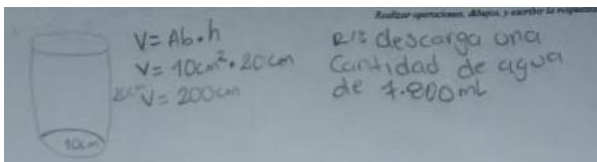 Realizar operaciones, dibujos, y escribir la respuesta
V= Ab.h
V= 10cm².20cm
V= 200cm
10cm
R/: descarga una
Cantidad de agua
de 7.800mL